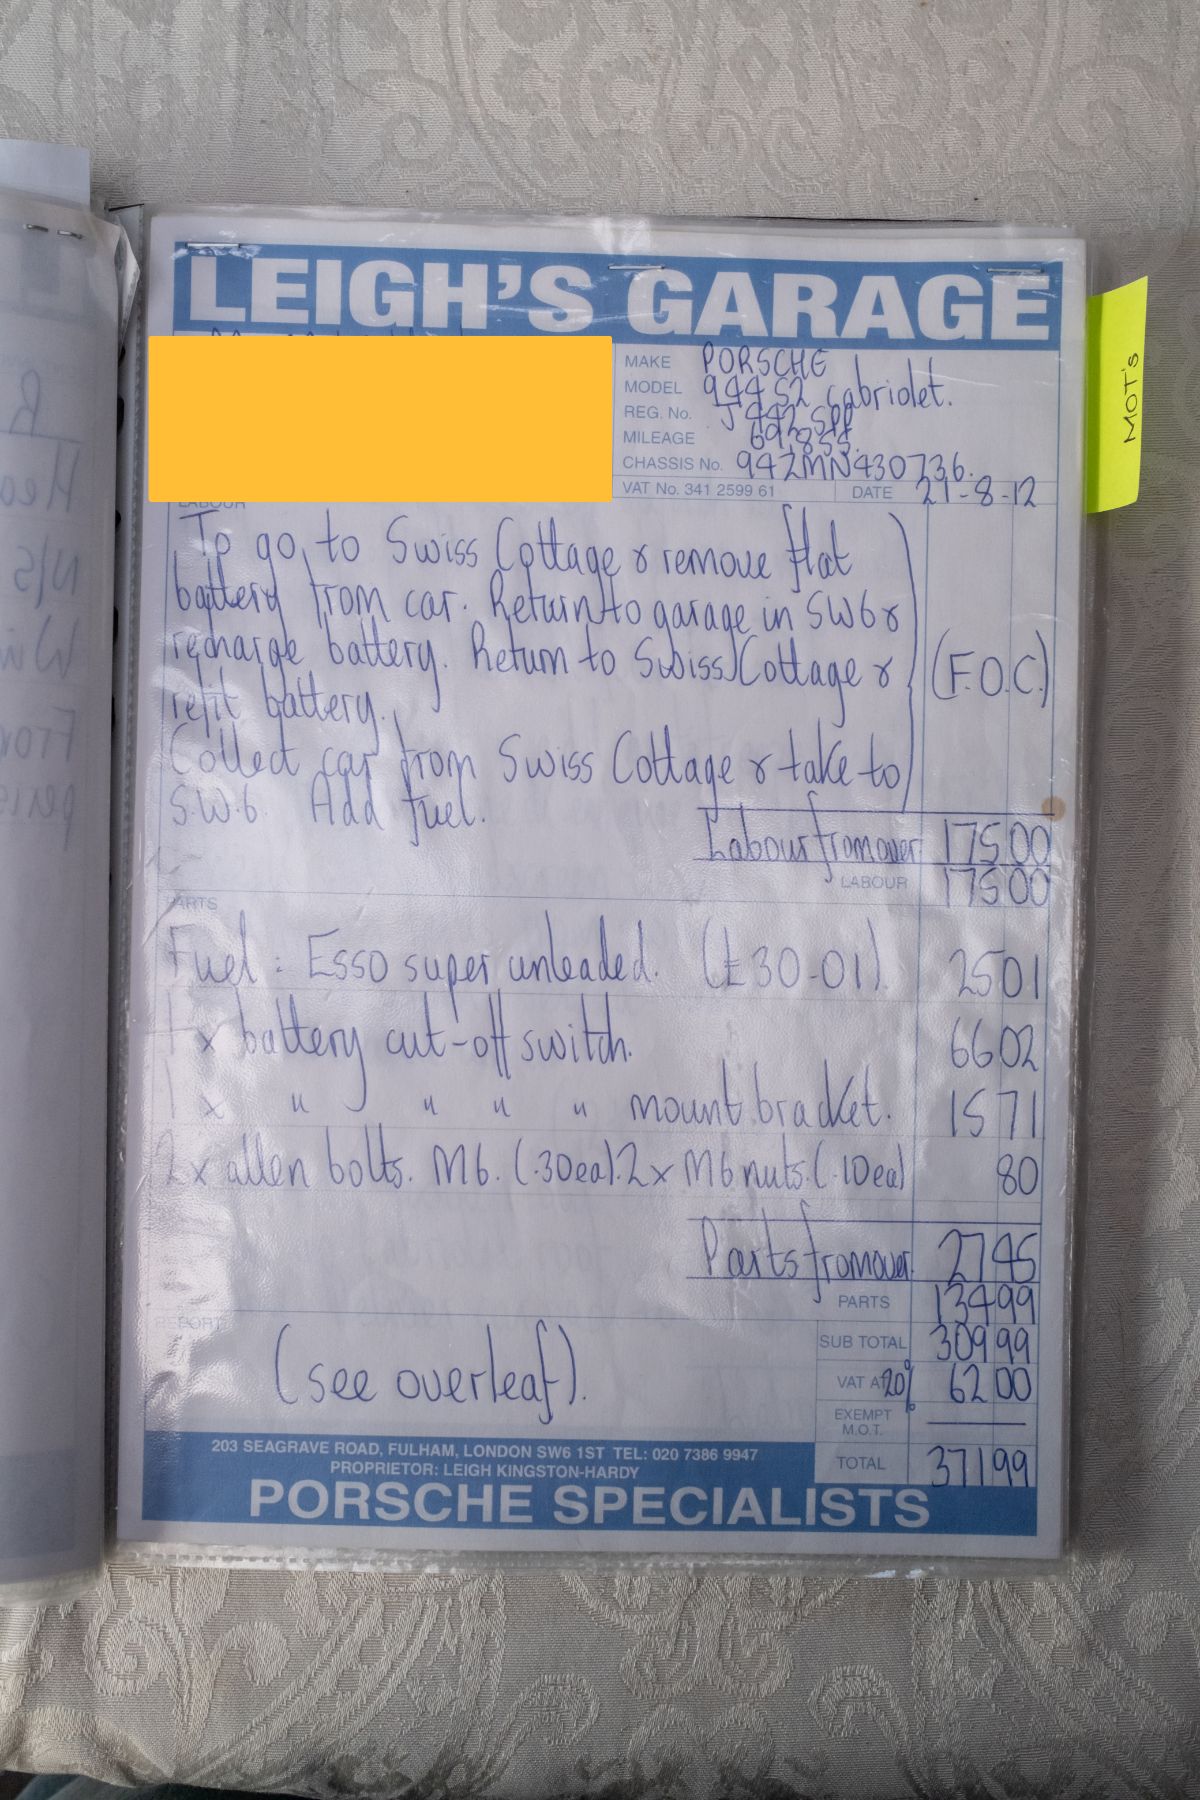 LEIGH'S GARAGE
MAKE PORSCHE
MODEL 944 S2 cabriolet.
REG. No. J442
MILEAGE 69,855.
CHASSIS No. 94ZMNN430736.
VAT No. 341 2599 61 DATE 21-8-12
LABOUR
To go to Swiss Cottage & remove flat
battery from car. Return to garage in SW6 &
recharge battery. Return to Swiss Cottage &
refit battery.
(F.O.C.)
Collect car from Swiss Cottage & take to
S.W.6. Add fuel.
Labour from over 175 00
LABOUR 175 00
PARTS
Fuel: Esso super unleaded. (£30-01). 25 01
1 x battery cut-off switch. 66 02
1 x " " " " mount bracket. 15 71
2 x allen bolts. M6. (.30ea). 2 x M6 nuts. (.10ea) 80
Parts from over 27 45
PARTS 134 99
REPORT
SUB TOTAL 309 99
(see overleaf).
VAT AT 20% 62 00
EXEMPT
M.O.T.
TOTAL 371 99
203 SEAGRAVE ROAD, FULHAM, LONDON SW6 1ST TEL: 020 7386 9947
PROPRIETOR: LEIGH KINGSTON-HARDY
PORSCHE SPECIALISTS
MOT's